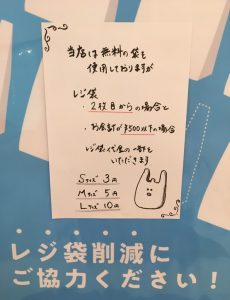 当店は無料の袋も
使用しておりますが
レジ袋
・2枚目からの場合と
・お会計が¥500以下の場合
レジ袋代金の一部を
いただきます
Sサイズ 3円
Mサイズ 5円
Lサイズ 10円
レジ袋削減に
ご協力ください!